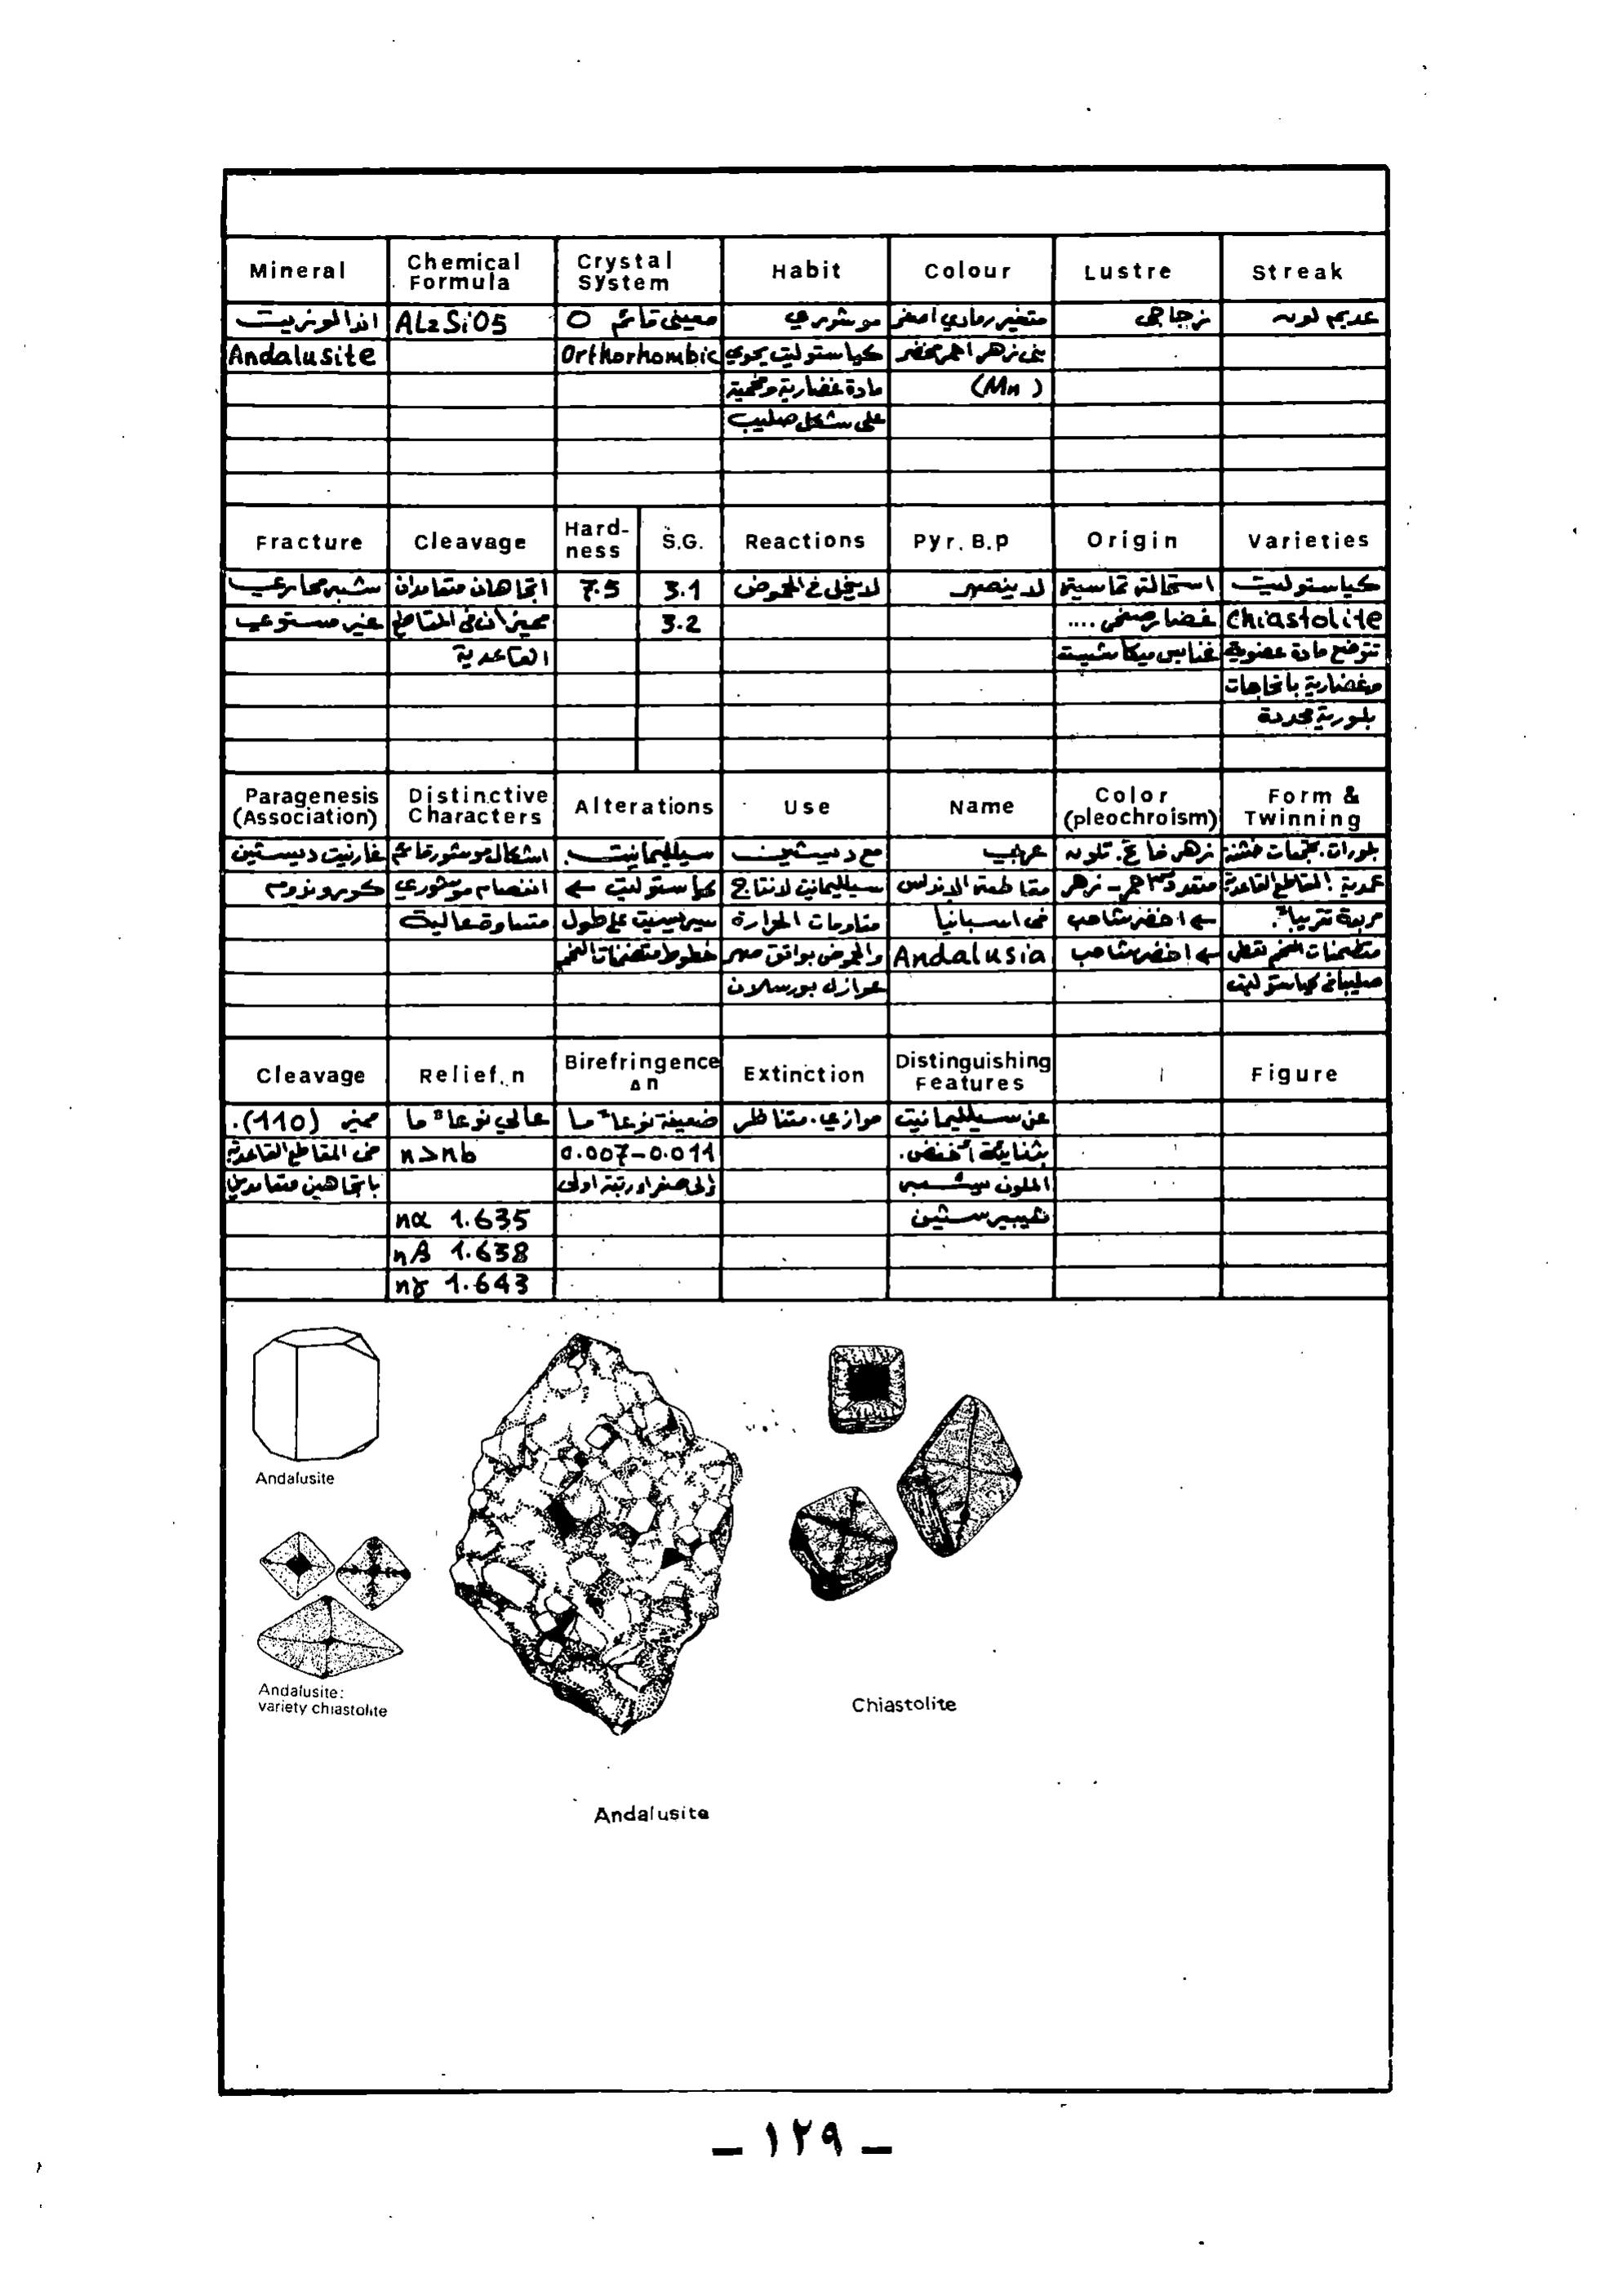 Mineral | Chemical Formula | Crystal System | Habit | Colour | Lustre | Streak
اندالوزيت | AL2SiO5 | معيني قائم O | موشوري | متغير رمادي اصفر | زجاجي | عديم لونه
Andalusite | | Orthorhombic | كياستوليت يحوي | بني زهر احمر مخضر | |
| | | مادة غضارية وفحمية | (Mn) | |
| | | على شكل صليب | | |
Fracture | Cleavage | Hardness | S.G. | Reactions | Pyr. B.p | Origin | Varieties
شبه محارعي | اتجاهان متعامدان | 7.5 | 3.1 | لاينحل في الحموض | لاينصهر | استحالة تماسية | كياستوليت
غير مستوعي | مميزان في المقاطع | | 3.2 | | | غضار صفحي .... | Chiastolite
| القاعدية | | | | | غنايس ميكاشيست | تتوضع مادة عضوية
| | | | | | | وغضارية باتجاهات
| | | | | | | بلورية محددة
Paragenesis (Association) | Distinctive Characters | Alterations | Use | Name | Color (pleochroism) | Form & Twinning
غارنيت ديستين | اشكال موشور قائم | سيلليمانيت. | مع ديستين | عربي | زهر فاتح. تلونه | بلورات. تجمعات خشنة
كوروندوم | انفصام موشوري | كياستوليت ← | سيلليمانيت لانتاج | مقاطعة الاندلس | متعدد احمر - زهر | عمدية. المقاطع القاعدية
| متساوة عالية | سيريسيت على طول | مقاومات الحرارة | في اسبانيا | ← اخضر شاحب | مربعة تقريباً.
| | خطوط متضمنات الفحم | والحموض بواتق صهر | Andalusia | ← اخضر شاحب | متضمنات الفحم تعطي
| | | عوازل بورسلان | | | صليبا في كياستوليت
Cleavage | Relief. n | Birefringence Δn | Extinction | Distinguishing Features | | Figure
مميز (110). | عالي نوعاً ما | ضعيفة نوعاً ما | موازي. متناظر | عن سيلليمانيت | |
في المقاطع القاعدية | n>nb | 0.007-0.011 | | | |
باتجاهين متعامدين | | | | الملون يشبه | |
| nα 1.635 | | | هيبرستين | |
| nβ 1.638 | | | | |
| nγ 1.643 | | | | |
Andalusite
Andalusite:
variety chiastolite
Chiastolite
Andalusite
— ١٢٩ —